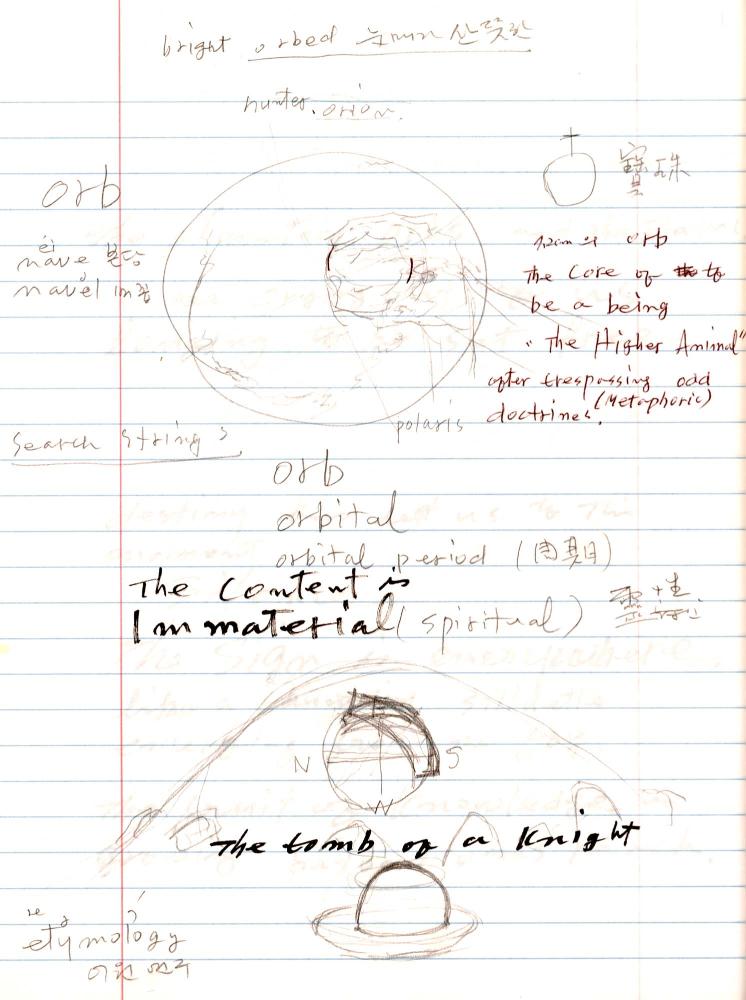 bright orbed 눈매가 산뜻한
hunter. orion.
orb
寶珠
nave 본당
navel 배꼽
12cm의 orb
the core of to
be a being
"The Higher Animal"
after trespassing odd
doctrines. (Metaphoric)
polaris
Search Strings
orb
orbital
orbital period (周期)
The Content is
Immaterial (spiritual) 靈性
N
E
S
W
The tomb of a Knight
etymology
어원연구